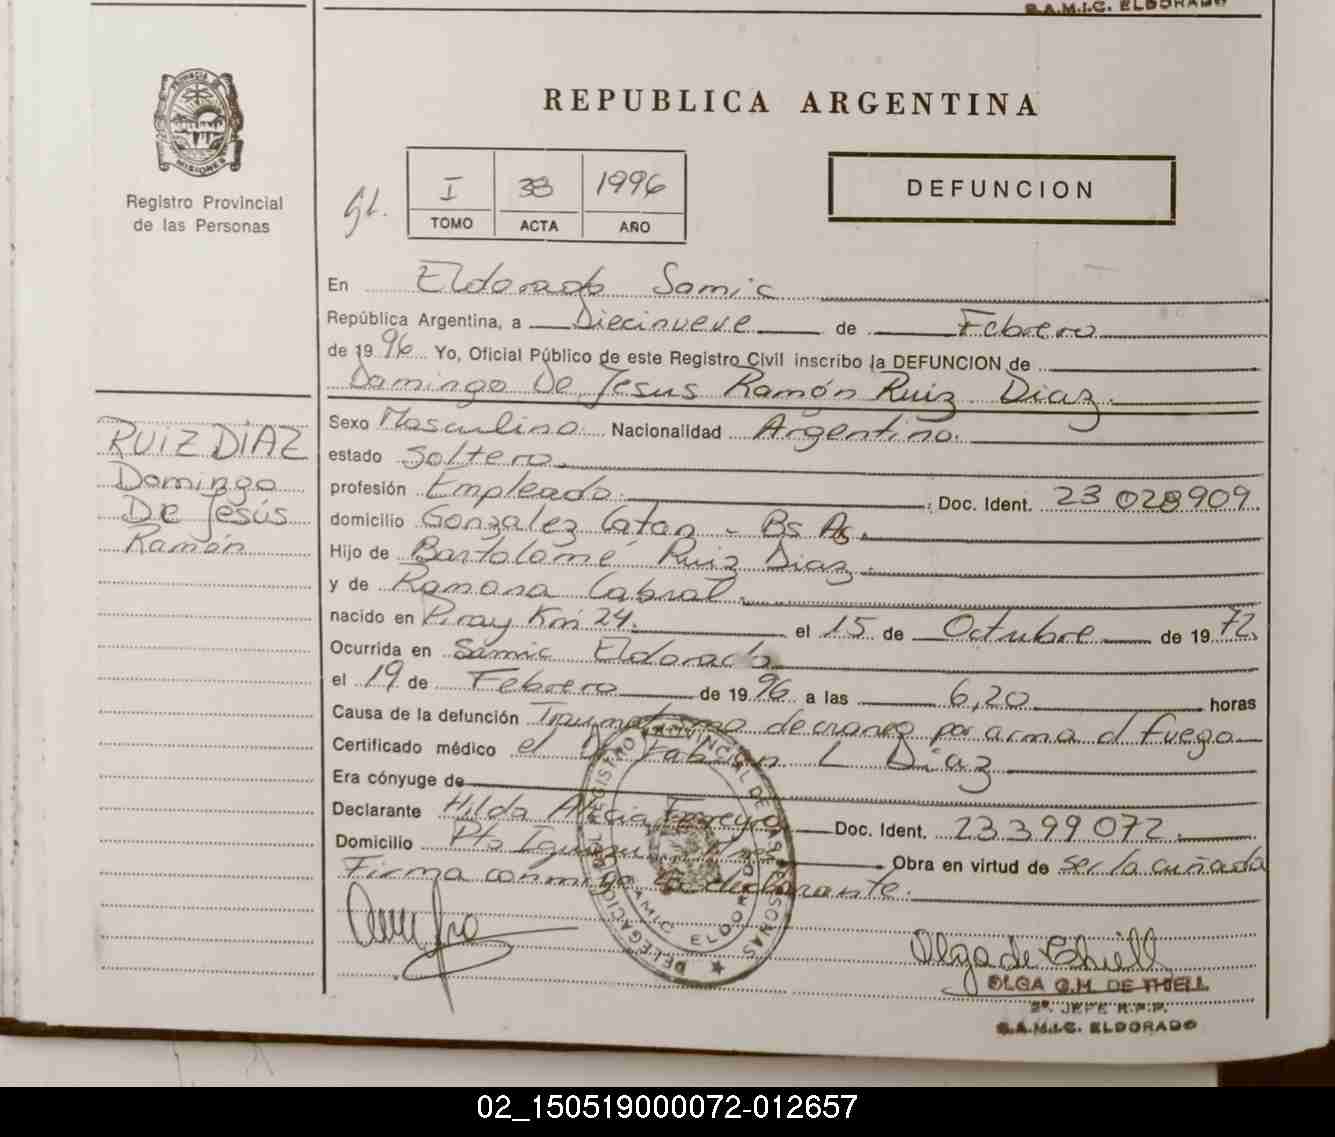 S.A.M.I.C. ELDORADO
PROVINCIA DE MISIONES
Registro Provincial
de las Personas
REPUBLICA ARGENTINA
I 38 1996
TOMO ACTA AÑO
DEFUNCION
En Eldorado Samic
República Argentina, a Diecinueve de Febrero
de 1996 Yo, Oficial Público de este Registro Civil inscribo la DEFUNCION de
Domingo De Jesus Ramón Ruiz Diaz.
RUIZ DIAZ
Domingo
De Jesús
Ramón
Sexo Masculino Nacionalidad Argentino.
estado Soltero.
profesión Empleado. Doc. Ident. 23 028909
domicilio Gonzalez Catan - Bs As.
Hijo de Bartolomé Ruiz Diaz.
y de Ramona Cabral.
nacido en Piray Km 24. el 15 de Octubre de 1972.
Ocurrida en Samic Eldorado
el 19 de Febrero de 1996 a las 6,20 horas
Causa de la defunción Traumatismo de craneo por arma d fuego
Certificado médico el Dr Fabian L Diaz
Era cónyuge de
Declarante Hilda Alicia Ferreyra Doc. Ident. 23.399 072.
Domicilio Pto Iguazu Obra en virtud de ser la cuñada
Firma conmigo la declarante.
DELEGACION REGISTRO PROVINCIAL DE LAS PERSONAS
SAMIC ELDORADO
Olga de Thiell
OLGA G.M. DE THIELL
2º. JEFE R.P.P.
S.A.M.I.C. ELDORADO
02_150519000072-012657